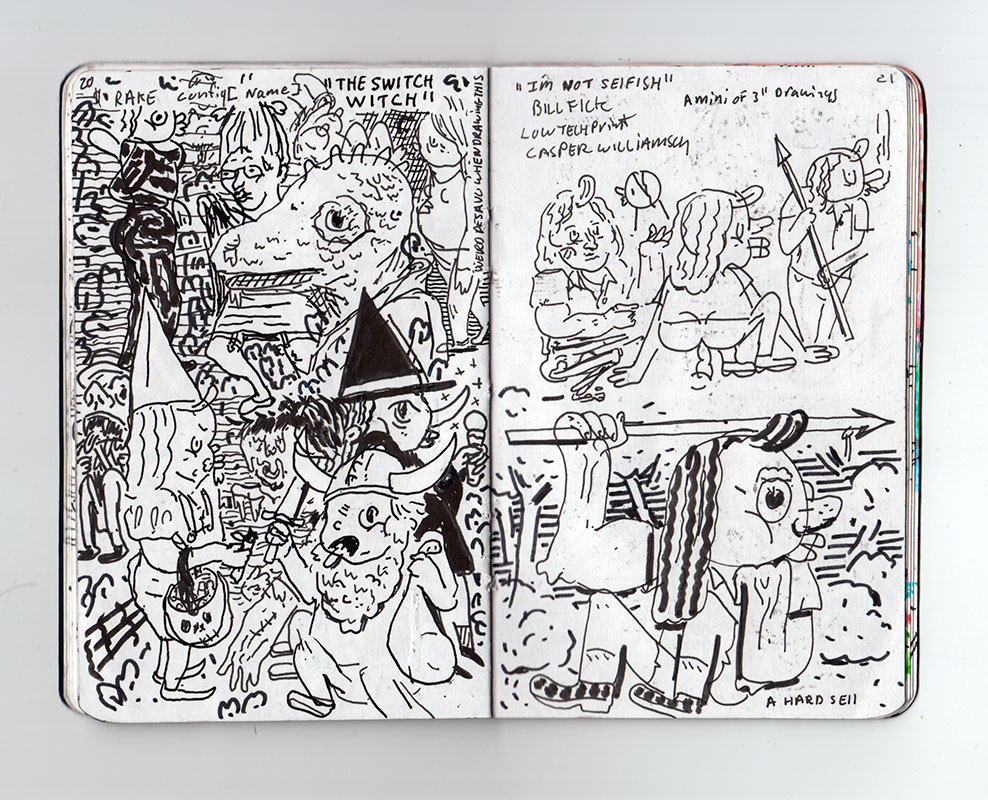 20
"RAKE Config[Name]"
"THE SWITCH
WITCH"
WEIRD DEJAVU WHEN DRAWING THIS
21
"I'M NOT SElFISH"
BILL FICK
LOWTECHPRINT
CASPER WILLIAMSON
A mini of 3" Drawings
A HARD SEll